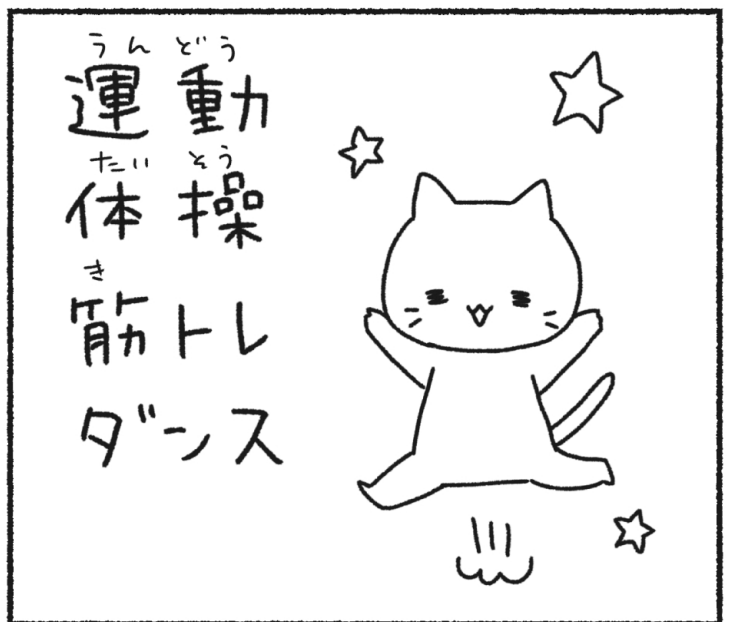 うんどう
運動
たいそう
体操
き
筋トレ
ダンス